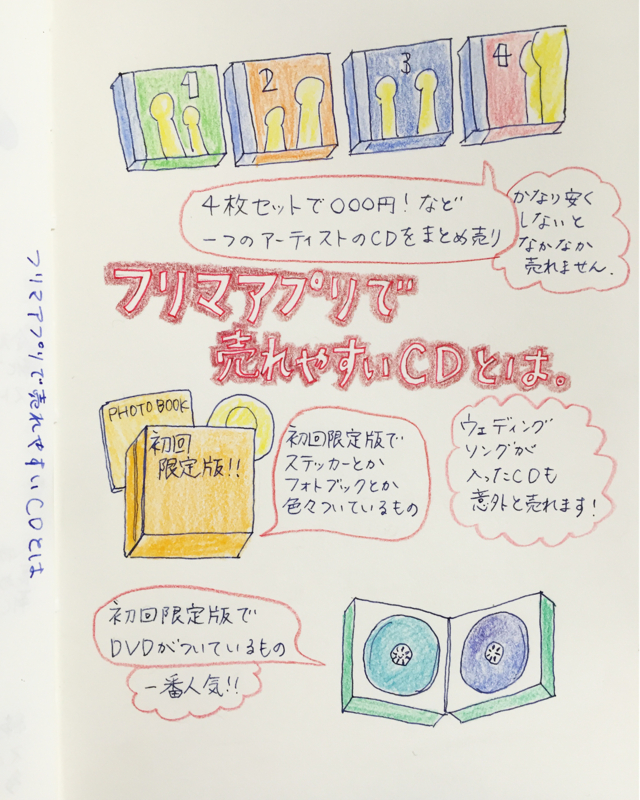 1
2
3
4
4枚セットで○○○円!など
一つのアーティストのCDをまとめ売り
かなり安く
しないと
なかなか
売れません.
フリマアプリで
売れやすいCDとは。
PHOTO BOOK
初回
限定版!!
初回限定版で
ステッカーとか
フォトブックとか
色々ついているもの
ウェディング
ソングが
入ったCDも
意外と売れます!
初回限定版で
DVDがついているもの
一番人気!!
フリマアプリで売れやすいCDとは